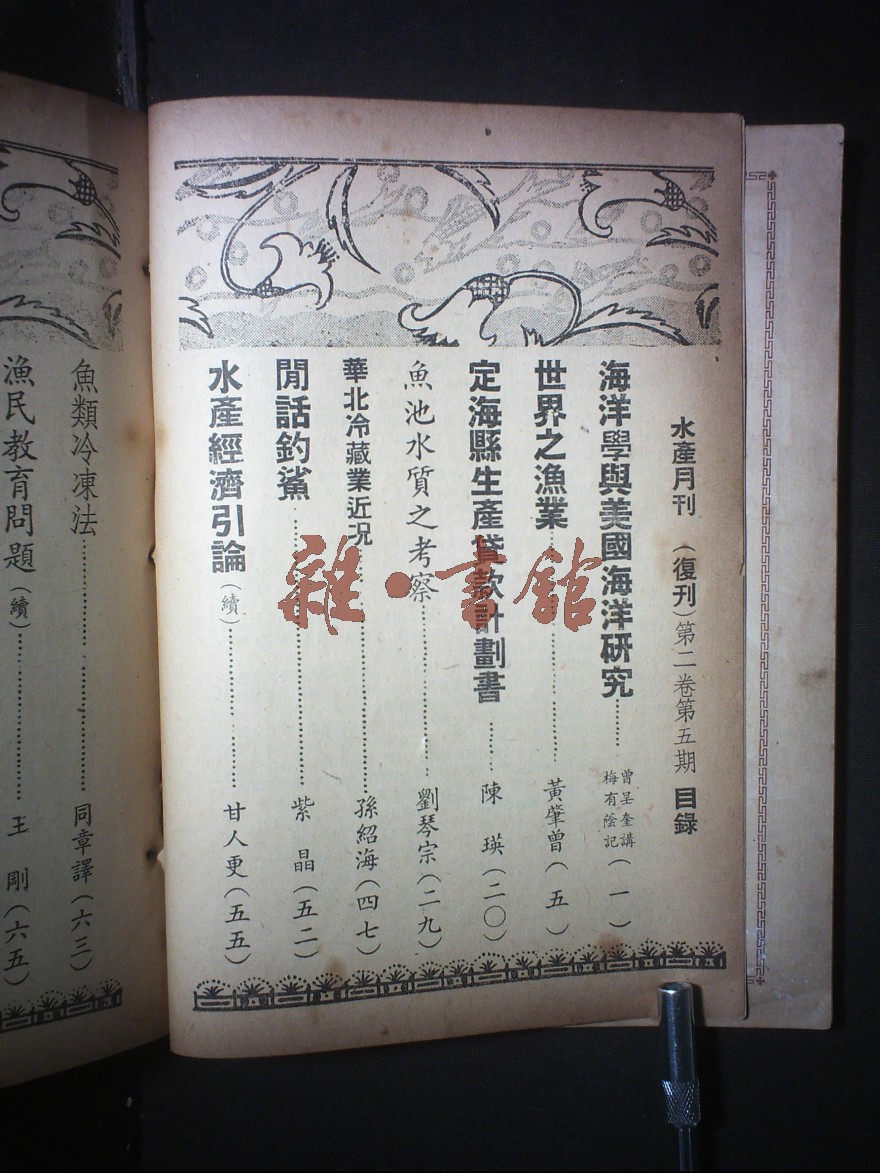 水產月刊（復刊）第二卷第五期 目錄
海洋學與美國海洋硏究……曾呈奎講 梅有蔭記（一）
世界之漁業……黃肇曾（五）
定海縣生產貸款計劃書……陳瑛（二〇）
魚池水質之考察……劉琴宗（二九）
華北冷藏業近況……孫紹海（四七）
閒話釣鯊……紫晶（五二）
水產經濟引論（續）……甘人更（五五）
魚類冷凍法……同章譯（六三）
漁民教育問題（續）……王剛（六五）
雜·書館